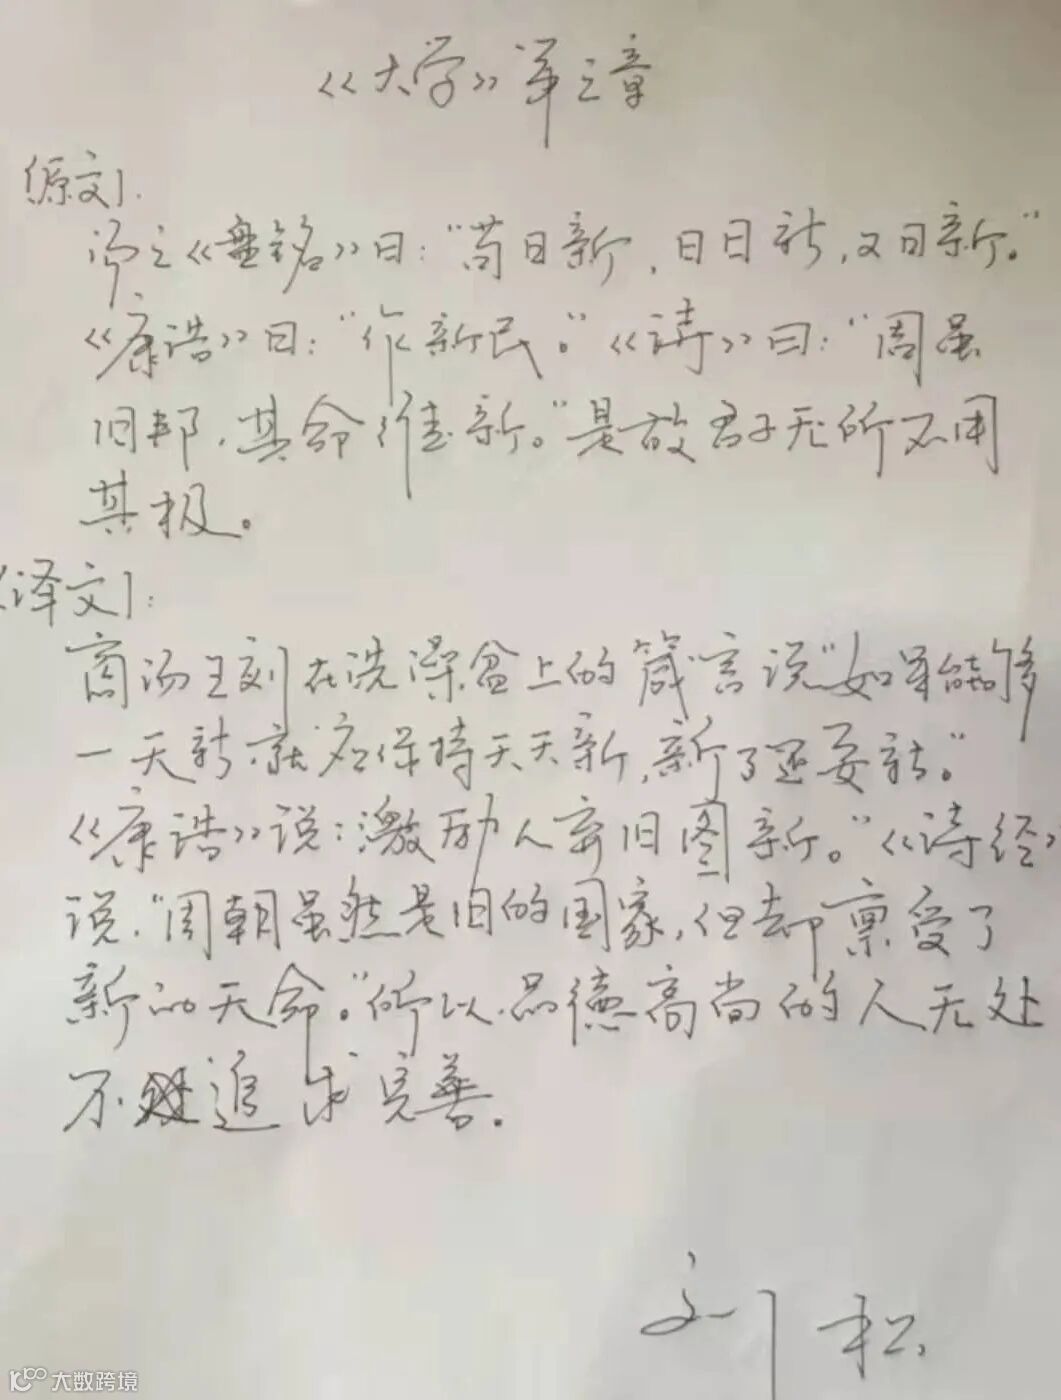 《大学》第三章
【原文】:
汤之《盘铭》曰:“苟日新,日日新,又日新。”
《康诰》曰:“作新民。”《诗》曰:“周虽
旧邦,其命惟新。”是故君子无所不用
其极。
【译文】:
商汤王刻在洗澡盆上的箴言说“如果能够
一天新就应保持天天新,新了还要新。”
《康诰》说:激励人弃旧图新。”《诗经》
说,“周朝虽然是旧的国家,但却禀受了
新的天命。”所以,品德高尚的人无处
不追求完善.
刘松
大数跨境